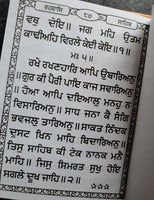 ਰਹਰਾਸਿ ੬੦ ਸਾਹਿਬ
ਵਥੁ ਦੇਇ ॥ ਜਗ ਮਹਿ ਉਤਮ
ਕਾਢੀਅਹਿ ਵਿਰਲੇ ਕੇਈ ਕੇਇ ॥੧॥
ਮਃ ੫ ॥
ਰਖੇ ਰਖਣਹਾਰਿ ਆਪਿ ਉਬਾਰਿਅਨੁ ॥
ਗੁਰ ਕੀ ਪੈਰੀ ਪਾਇ ਕਾਜ ਸਵਾਰਿਅਨੁ ॥
ਹੋਆ ਆਪਿ ਦਇਆਲੁ ਮਨਹੁ ਨ
ਵਿਸਾਰਿਅਨੁ ॥ ਸਾਧ ਜਨਾ ਕੈ ਸੰਗਿ
ਭਵਜਲੁ ਤਾਰਿਅਨੁ ॥ ਸਾਕਤ ਨਿੰਦਕ
ਦੁਸਟ ਖਿਨ ਮਾਹਿ ਬਿਦਾਰਿਅਨੁ ॥
ਤਿਸੁ ਸਾਹਿਬ ਕੀ ਟੇਕ ਨਾਨਕ ਮਨੈ
ਮਾਹਿ ॥ ਜਿਸੁ ਸਿਮਰਤ ਸੁਖੁ ਹੋਇ
ਸਗਲੇ ਦੂਖ ਜਾਹਿ ॥੨॥